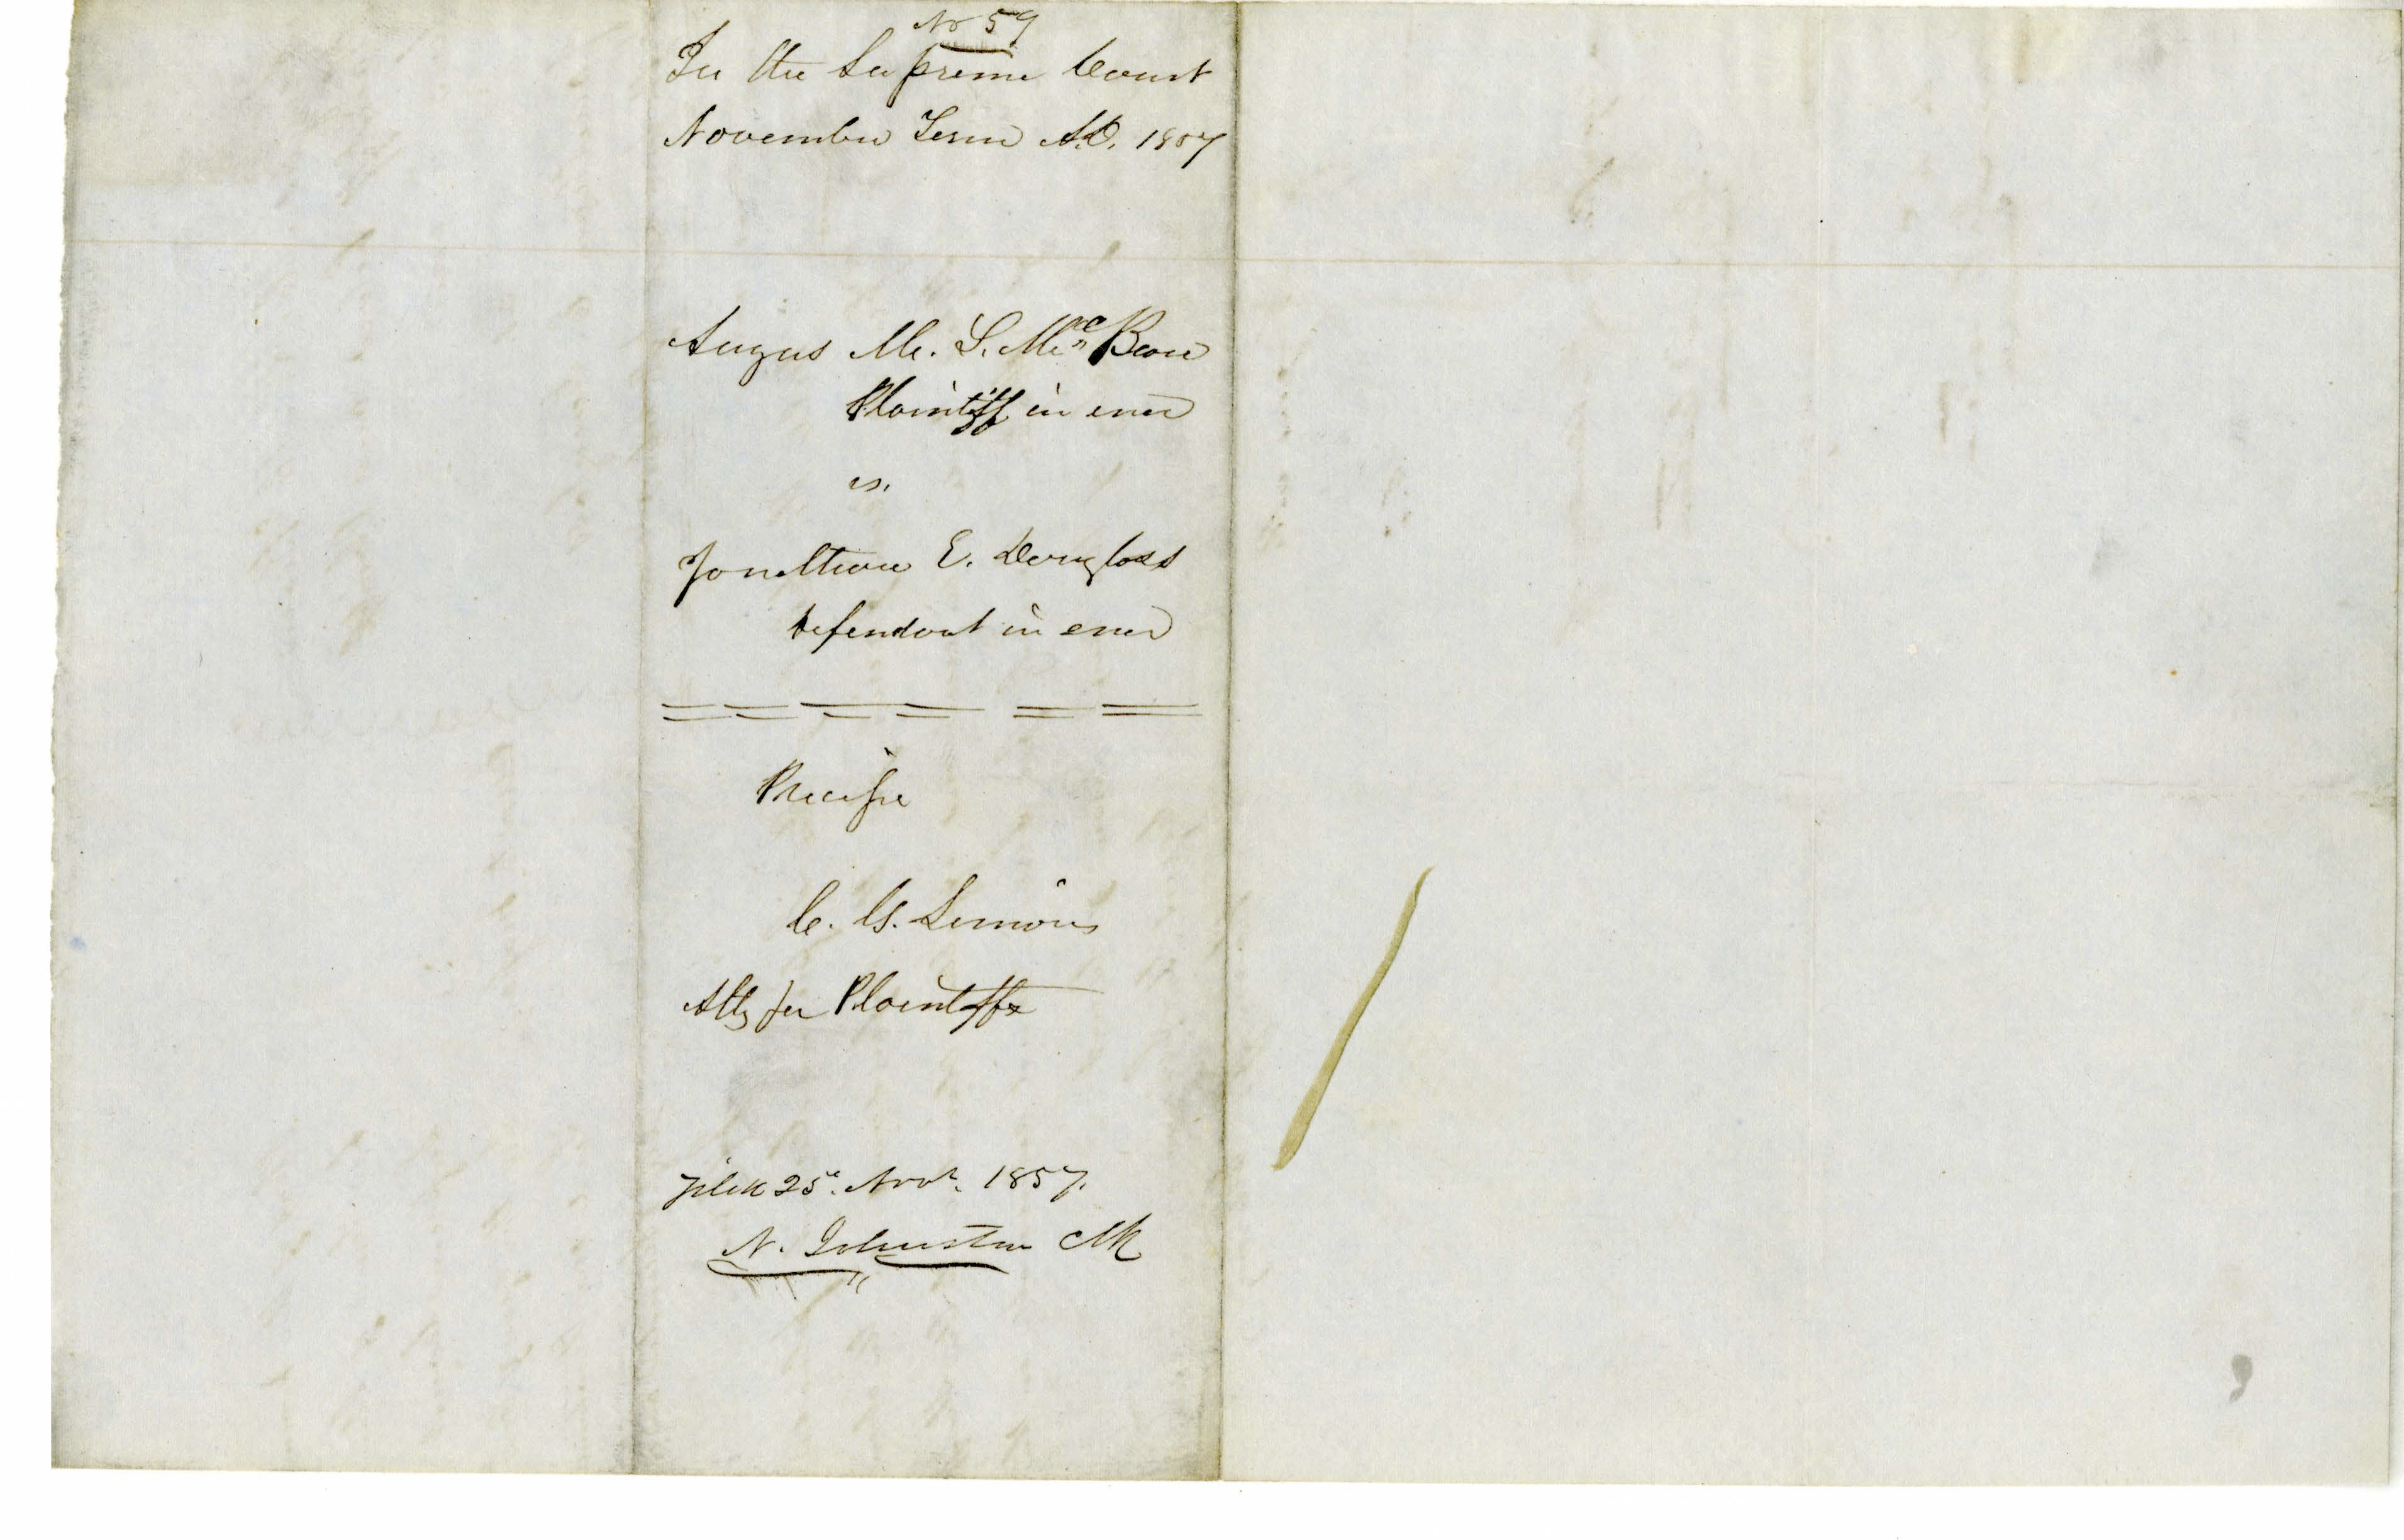 No 59
In the Supreme Court
November Term A.D. 1857
Angus Mc. L. Mc Bane
Plaintiff in error
vs.
Jonathan E. Douglass
defendant in error
Precipe
C. B. Simons
Atty for Plaintiff
Filed 25th. Novr. 1857.
N. Johnston Clk